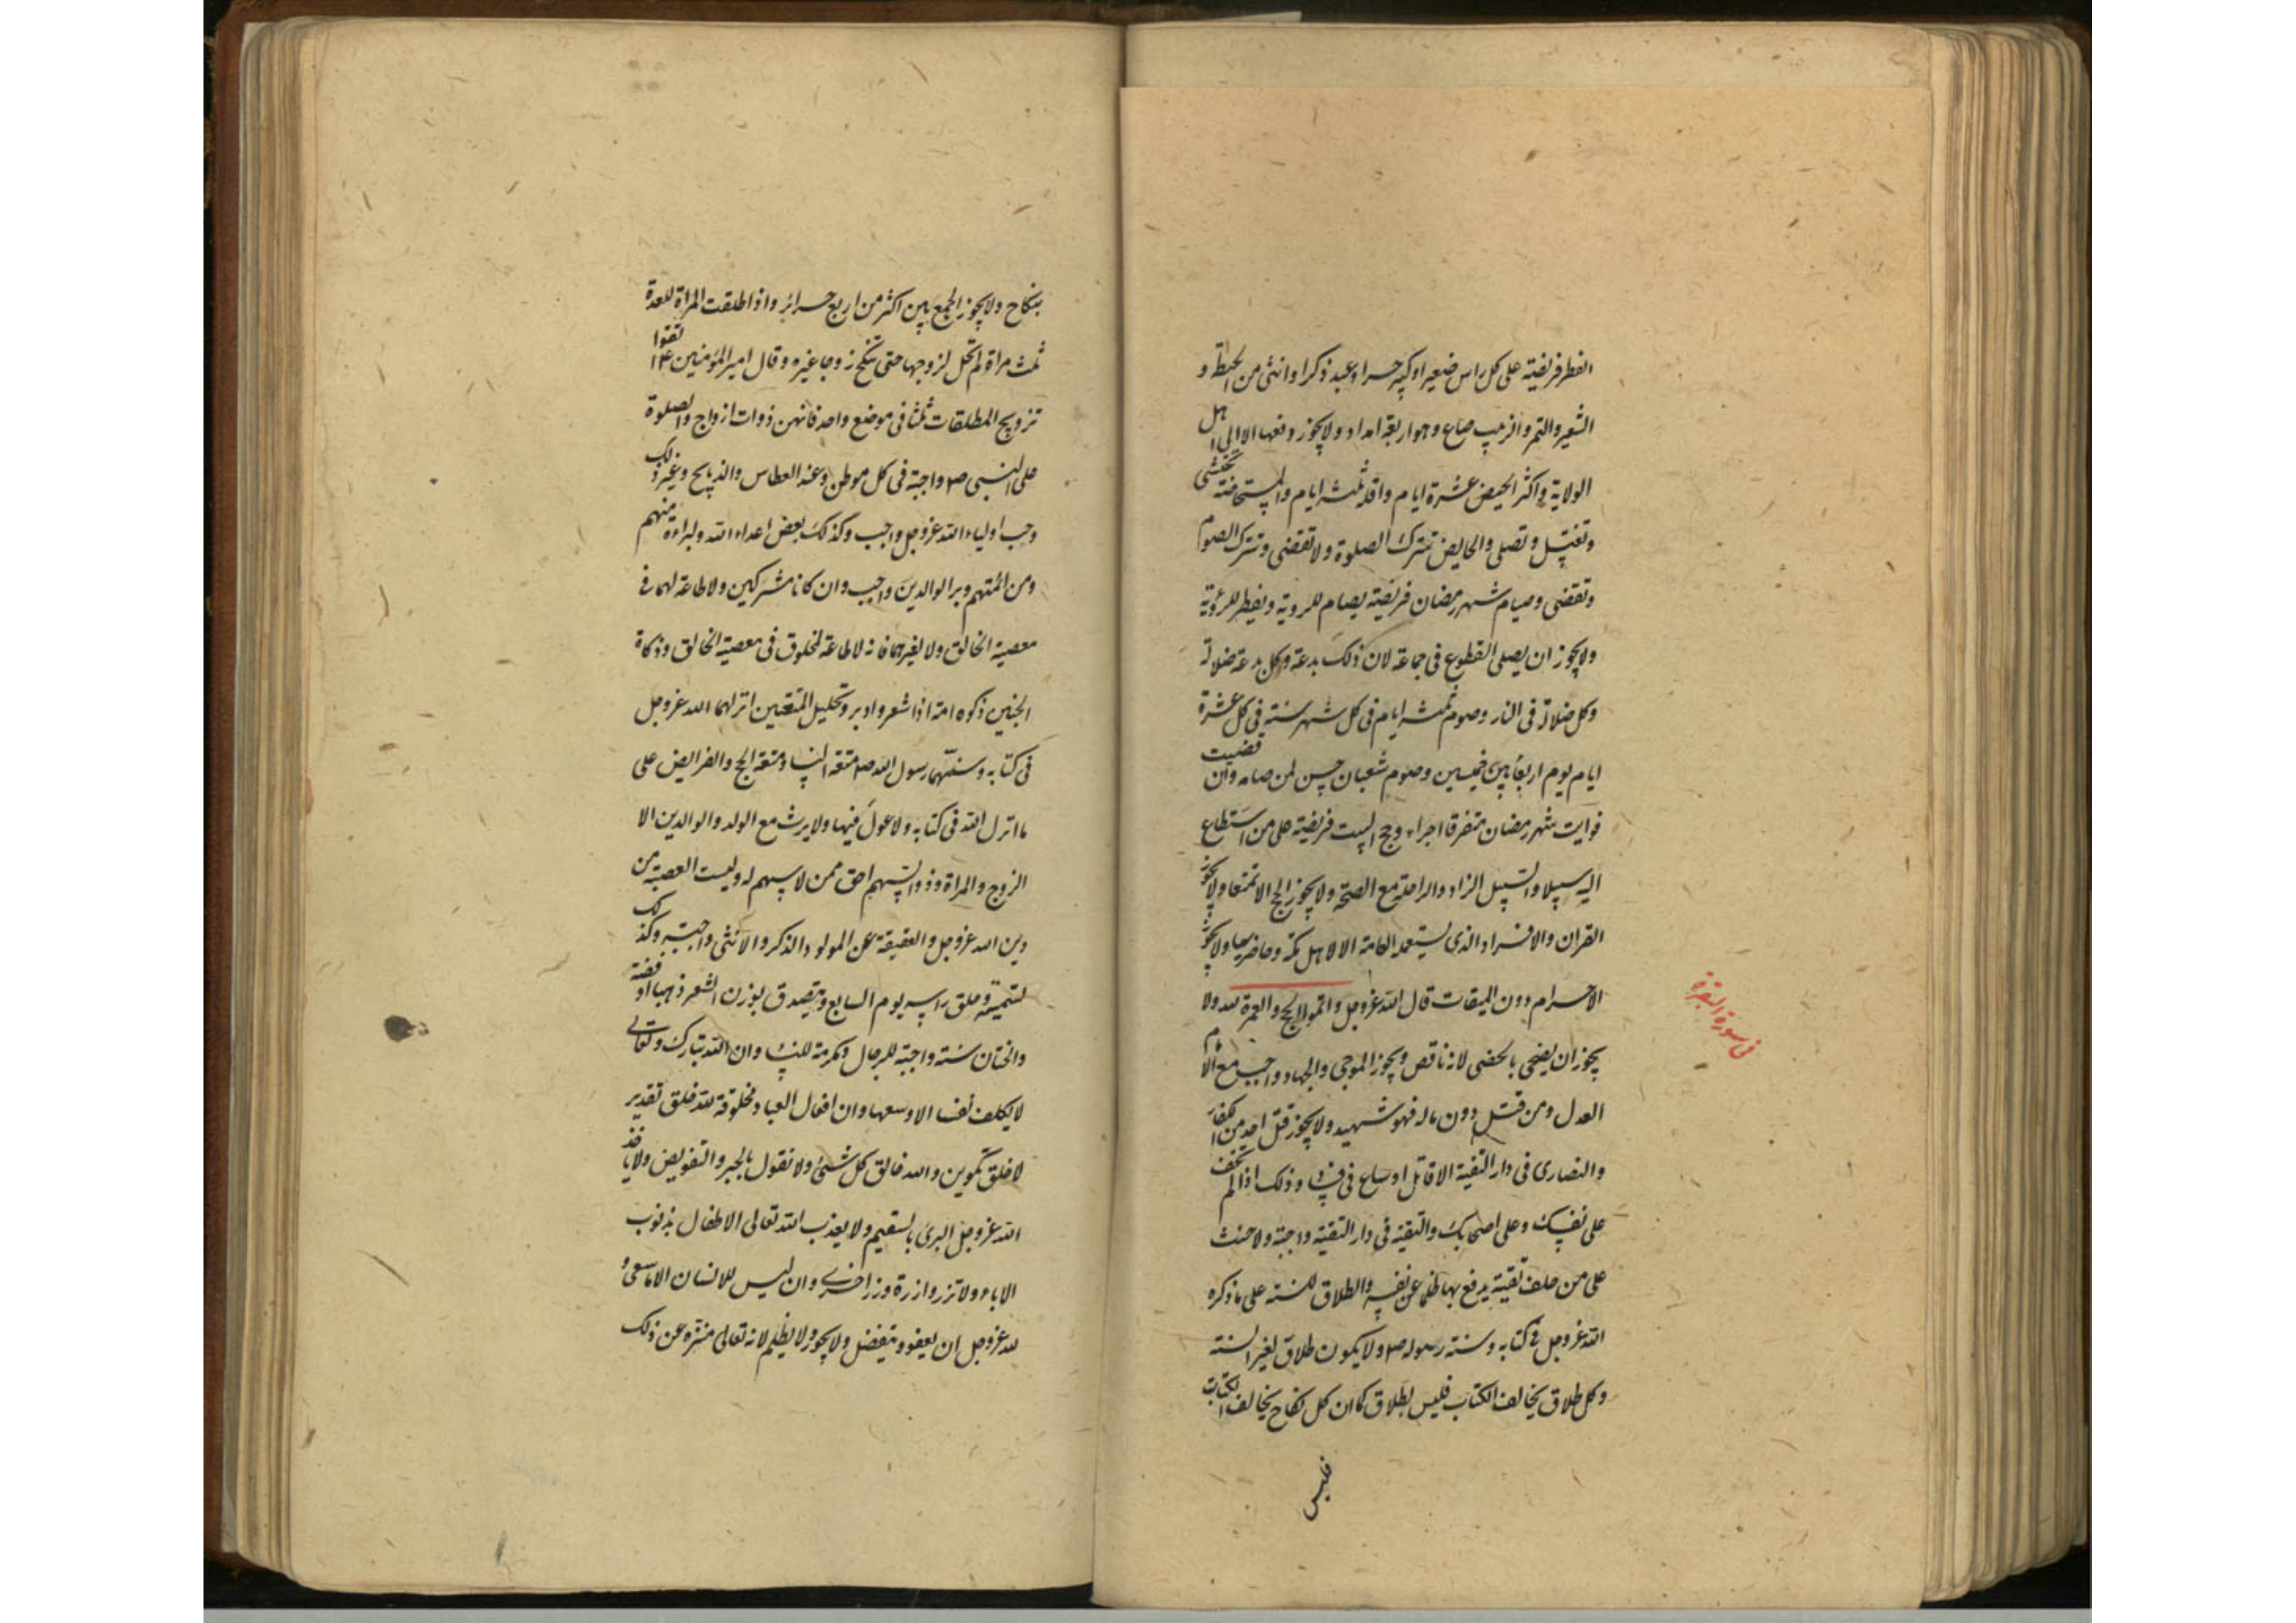 الفطر فريضة على كل راس صغير او كبير حر او عبد ذكر او انثى من الحنطة و
الشعير والتمر والزبيب صاع وهو اربعة امداد ولا يجوز دفعها الا الى اهل
الولاية و اكثر الحيض عشرة ايام واقله ثلثة ايام والمستحاضة تحتشى
وتغتسل وتصلى والحايض تترك الصلوة ولا تقضى وتترك الصوم
وتقضى وصيام شهر رمضان فريضة يصام للروية ويفطر للروية
ولا يجوز ان يصلى التطوع فى جماعة لان ذلك بدعة وكل بدعة ضلالة
وكل ضلالة فى النار وصوم ثلثة ايام فى كل شهر سنة فى كل عشرة
ايام يوم اربعا بين خميسين وصوم شعبان حسن لمن صامه وان قضيت
فوايت شهر رمضان متفرقا اجزاء وحج البيت فريضة على من استطاع
اليه سبيلا والسبيل الزاد والراحلة مع الصحة ولا يجوز الحج الا تمتعا ولا يجوز
القران والافراد الذى يستعمله العامة الا لاهل مكة وحاضريها ولا يجوز
الاحرام دون الميقات قال الله عزوجل واتموا الحج والعمرة لله ولا
يجوز ان يضحى بالخصى لانه ناقص ويجوز الموجى والجهاد واجب مع الامام
العدل ومن قتل دون ماله فهو شهيد ولا يجوز قتل احد من الكفار
والنصارى فى دار التقية الا قاتل او ساع فى فساد وذلك اذا لم تخف
على نفسك وعلى اصحابك والتقية فى دار التقية واجبة ولا حنث
على من حلف تقية يدفع بها ظلما عن نفسه والطلاق للسنة على ما ذكره
الله عزوجل فى كتابه وسنة رسوله ص ولا يكون طلاق لغير السنة
وكل طلاق يخالف الكتاب فليس بطلاق كما ان كل نكاح يخالف الكتاب
فليس
فى سورة البقرة
بنكاح ولا يجوز الجمع بين اكثر من اربع حراير واذا طلقت المراة للعدة
ثلث مراة لم تحل لزوجها حتى تنكح زوجا غيره وقال امير المؤمنين ع اتقوا
تزويج المطلقات ثلثا فى موضع واحد فانهن ذوات ازواج والصلوة
على النبى ص واجبة فى كل موطن وعند العطاس والذبايح وغير ذلك
وحب اولياء الله عزوجل واجب وكذلك بغض اعداء الله والبراءة منهم
ومن ائمتهم وبر الوالدين واجب وان كانا مشركين ولا طاعة لهما فى
معصية الخالق ولا لغيرهما فانه لا طاعة لمخلوق فى معصية الخالق وذكاة
الجنين ذكوه امه اذا اشعر واوبر وتحليل المتعتين انزلهما الله عزوجل
فى كتابه وسنتهما رسول الله ص متعة النساء ومتعة الحج والفرايض على
ما انزل الله فى كتابه ولا عول فيها ولا يرث مع الولد والوالدين الا
الزوج والمراة وذو السهم احق ممن لا سهم له وليست العصبة من
دين الله عزوجل والعقيقة عن المولود الذكر والانثى واجبة وكذلك
تسميته وحلق راسه يوم السابع ويتصدق بوزن الشعر ذهبا او فضة
والختان سنة واجبة للرجال ومكرمة للنساء وان الله تبارك وتعالى
لا يكلف نفسا الا وسعها وان افعال العباد مخلوقة لله خلق تقدير
لا خلق تكوين والله خالق كل شىء ولا نقول بالجبر والتفويض ولا ياخذ
الله عزوجل البرى بالسقيم ولا يعذب الله تعالى الاطفال بذنوب
الاباء ولا تزر وازرة وزر اخرى وان ليس للانسان الا ما سعى و
لله عزوجل ان يعفو ويتفضل ولا يجوز ولا يظلم لانه تعالى منزه عن ذلك